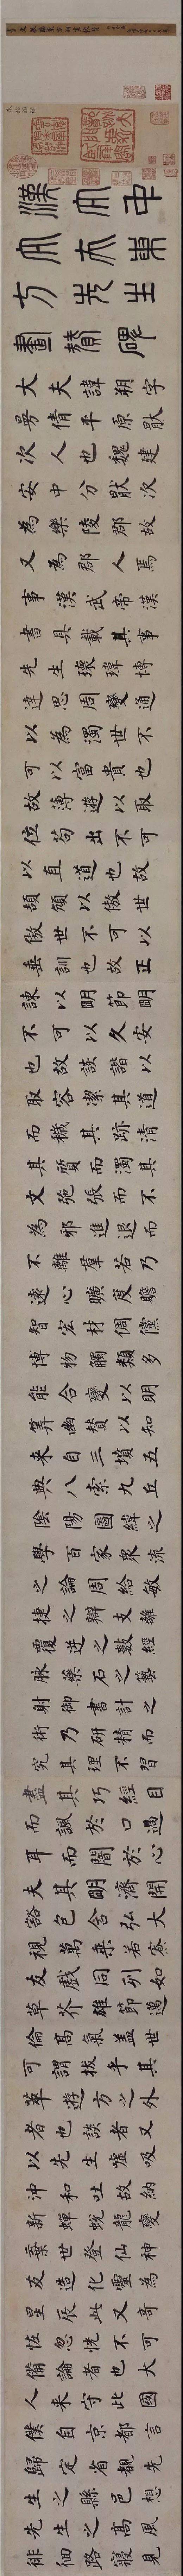 漢大中
大夫東
方先生
畫贊碑
大夫諱朔字
曼倩平原猒
次人也魏建
安中分猒次
為樂陵郡故
又為郡人焉
事漢武帝漢
書具載其事
先生瓌瑋博
達思周變通
以為濁世不
可以富貴也
故薄遊以取
位苟出不可
以直道也故
頡頏以傲世
傲世不可以
垂訓也故正
諫以明節明
節不可以久安
也故談諧以
取容潔其道
而穢其跡清
其質而濁其
文弛張而不
為邪進退而
不離羣若乃
遠心曠度贍
智宏材倜儻
博物觸類多
能合變以明
筭幽贊以知
來自三墳五
典八索九丘
陰陽圖緯之
學百家衆流
之論周給敏
捷之辯支離
覆逆之數經
脉藥石之藝
射御書計之
術乃研精而
究其理不習
而盡其巧經目
而諷於口過
耳而闇於心
夫其明濟開
豁包含弘大
視萬乘若寮
友戲同列如
草芥雄節邁
倫高氣蓋世
可謂拔乎其
萃遊方之外
者也談者又
以先生噓吸
沖和吐故納
新蟬蛻龍變
棄世登仙神
友造化靈為
星辰此又奇
怪忽恍不可
備論者也大
人來守此國
僕自京都言
歸定省覩先
生之縣邑想
先生之高風
徘徊路寢見